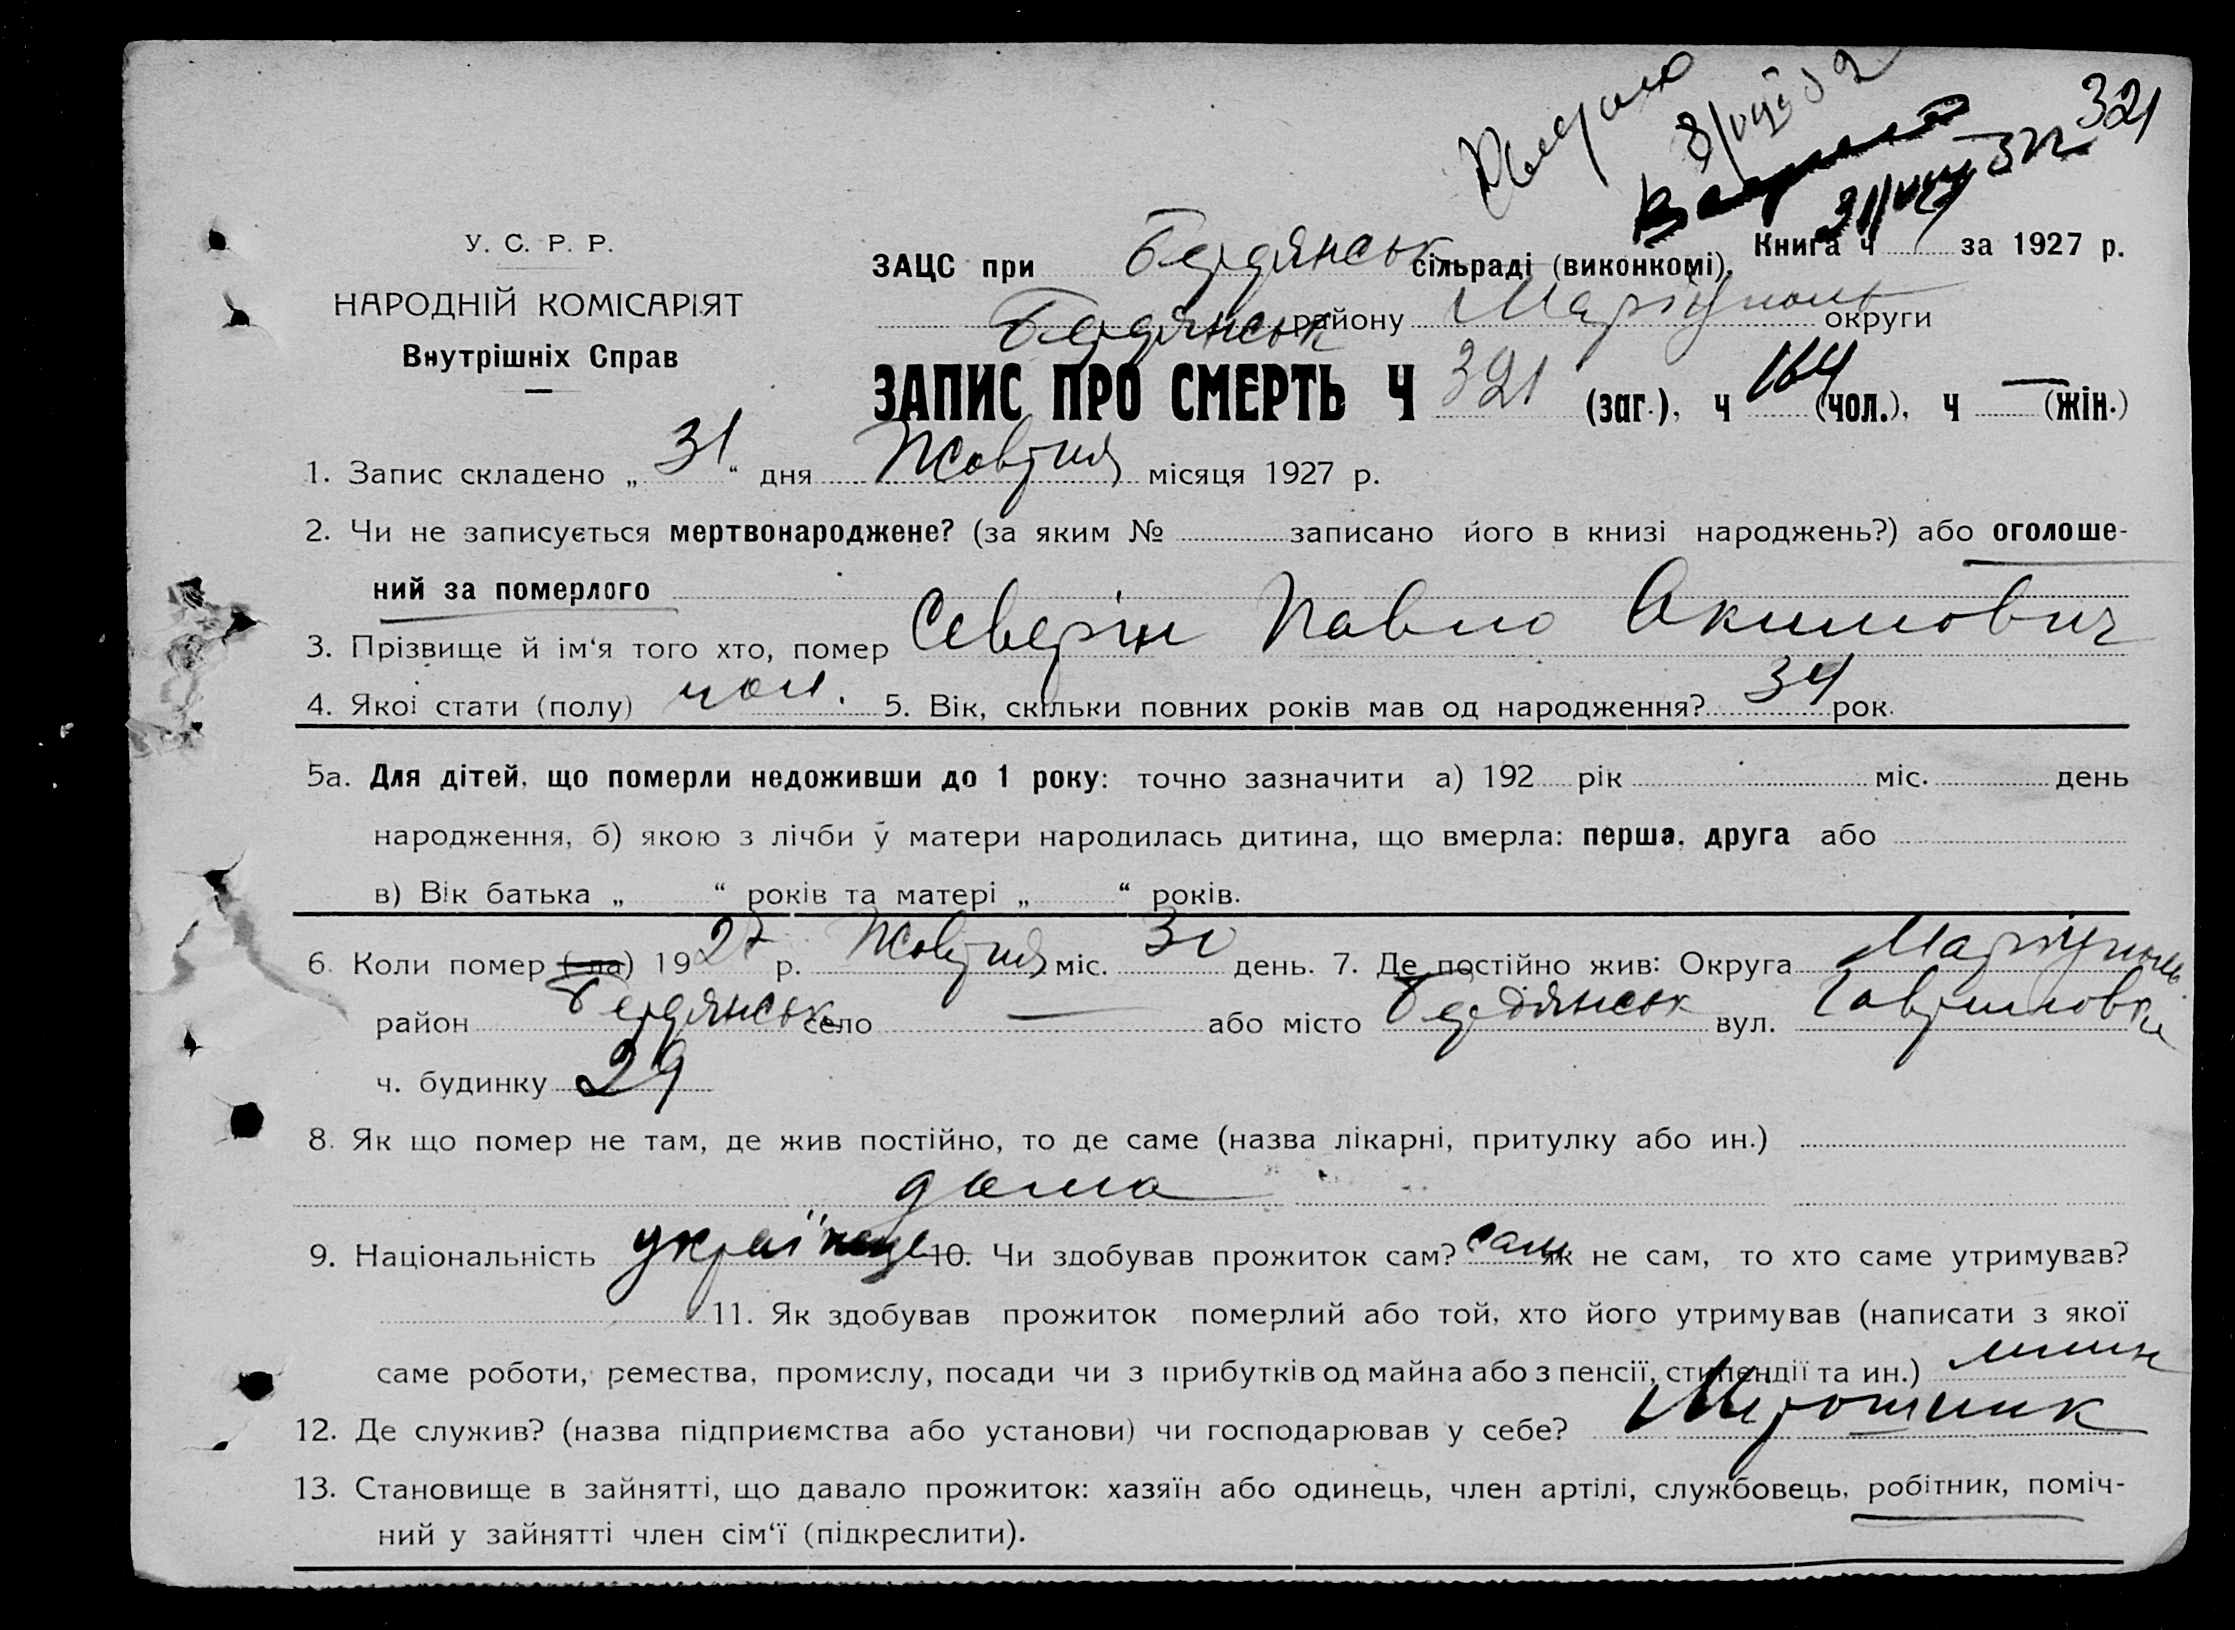 321
У. С. Р. Р.
НАРОДНІЙ КОМІСАРІЯТ
Внутрішніх Справ
Книга ч за 1927 р.
ЗАЦС при Бердянськ сільраді (виконкомі),
Бердянськ району Маріуполь округи
ЗАПИС ПРО СМЕРТЬ Ч 321 (заг.), ч 164 (чол.), ч — (жін.)
1. Запис складено „ 31 “ дня Жовтня місяця 1927 р.
2. Чи не записується мертвонароджене? (за яким № записано його в книзі народжень?) або оголоше-
ний за померлого
3. Прізвище й ім‘я того хто, помер Северін Павло Акимович
4. Якої стати (полу) чол. 5. Вік, скільки повних років мав од народження? 34 рок.
5а. Для дітей, що померли недоживши до 1 року: точно зазначити а) 192 рік міс. день
народження, б) якою з лічби у матери народилась дитина, що вмерла: перша, друга або
в) Вік батька „ “ років та матері „ “ років.
6. Коли помер (-ла) 1927 р. Жовтня міс. 30 день. 7. Де постійно жив: Округа Маріуполь
район Бердянськ село — або місто Бердянськ вул.
ч. будинку 29
8. Як що помер не там, де жив постійно, то де саме (назва лікарні, притулку або ин.)
дома
9. Національність українец 10. Чи здобував прожиток сам? сам як не сам, то хто саме утримував?
11. Як здобував прожиток померлий або той, хто його утримував (написати з якої
саме роботи, ремества, промислу, посади чи з прибутків од майна або з пенсії, стипендії та ин.)
12. Де служив? (назва підприємства або установи) чи господарював у себе? Мірошник
13. Становище в зайнятті, що давало прожиток: хазяїн або одинець, член артілі, службовець, робітник, поміч-
ний у зайнятті член сім‘ї (підкреслити).